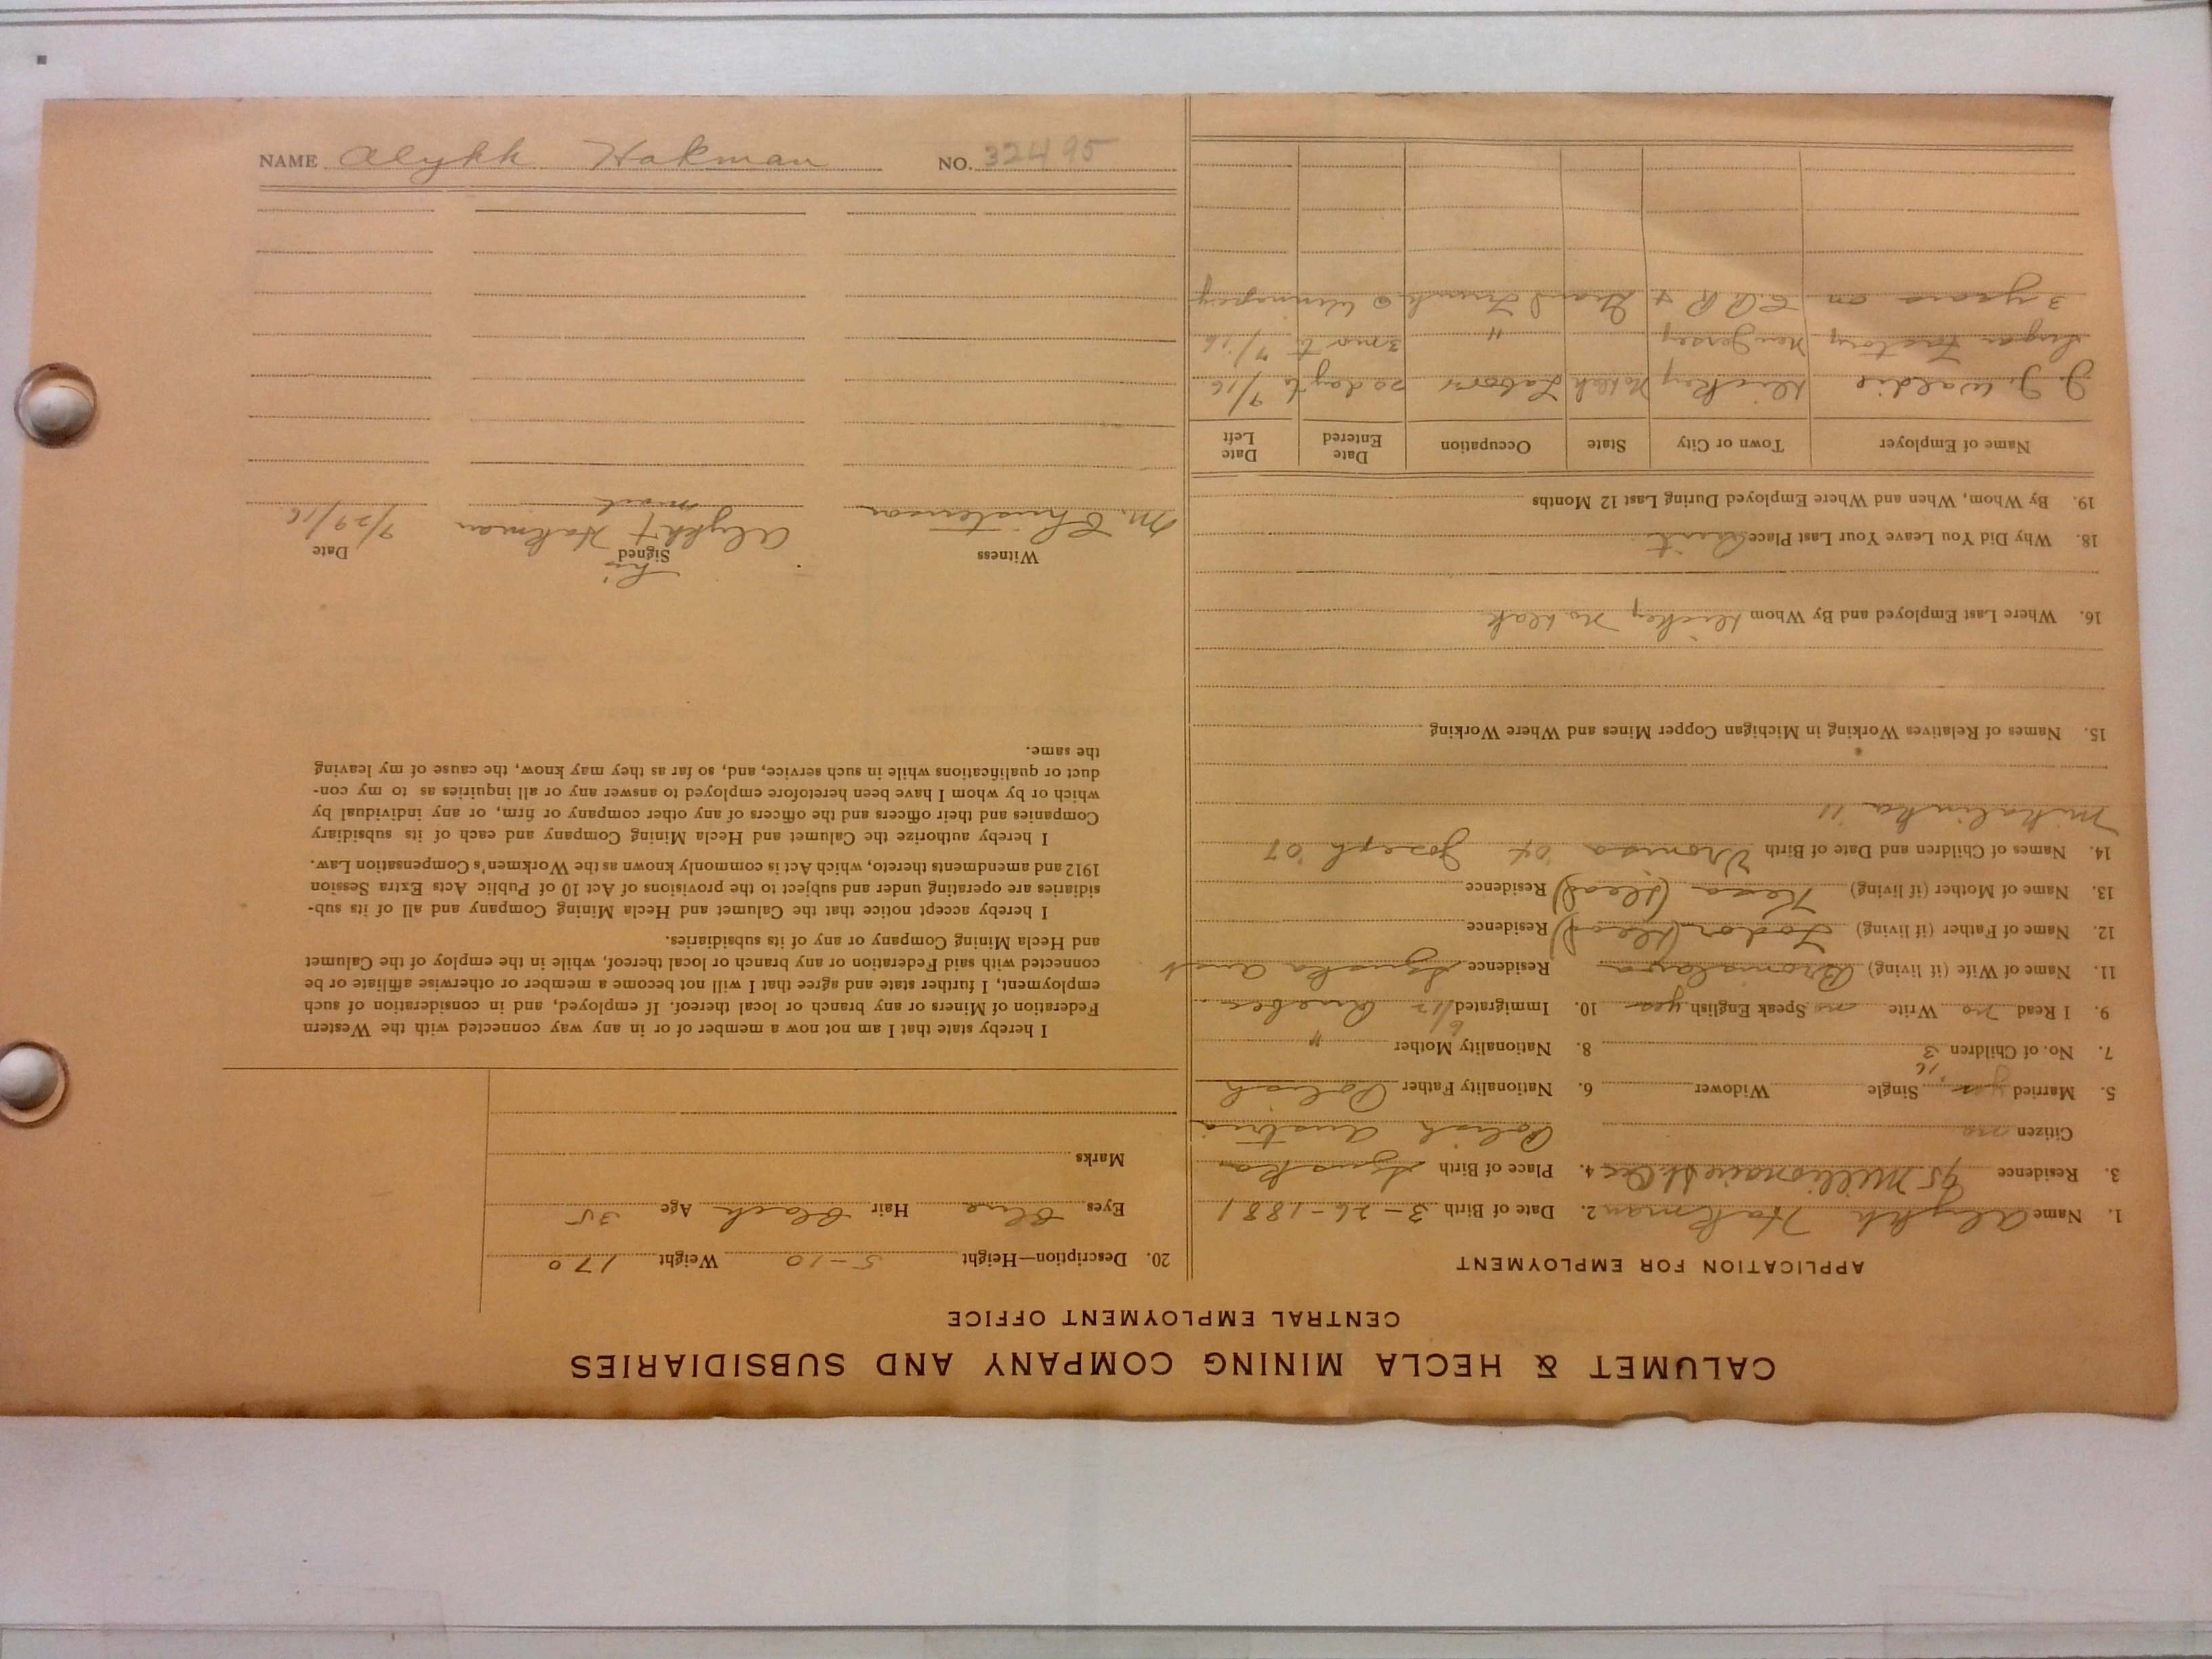 CALUMET & HECLA MINING COMPANY AND SUBSIDIARIES
CENTRAL EMPLOYMENT OFFICE
APPLICATION FOR EMPLOYMENT
1. Name Alykh Hakman 2. Date of Birth 3-26-1881
3. Residence 95 Millionaire St. 4. Place of Birth
Citizen no Polish Austria
5. Married yes Single Widower 6. Nationality Father Polish
7. No. of Children 3 8. Nationality Mother "
9. I Read no Write no Speak English yes 10. Immigrated 6/12 Quebec
11. Name of Wife (if living) Residence
12. Name of Father (if living) Fodor (dead) Residence
13. Name of Mother (if living) (dead) Residence
14. Names of Children and Date of Birth 04 Joseph 07
Mikalinka 11
15. Names of Relatives Working in Michigan Copper Mines and Where Working
16. Where Last Employed and By Whom Hickey No. Dak
18. Why Did You Leave Your Last Place Quit
19. By Whom, When and Where Employed During Last 12 Months
Name of Employer Town or City State Occupation Date Entered Date Left
J. J. Waldie Hickey No Dak Labor 20 days 9/16
Sugar Factory New Jersey " 3 mo 7/16
3 years on C.P.R + Grand Trunk @ Winnipeg
20. Description—Height 5-10 Weight 170
Eyes Blue Hair Black Age 35
Marks
I hereby state that I am not now a member of or in any way connected with the Western
Federation of Miners or any branch or local thereof. If employed, and in consideration of such
employment, I further state and agree that I will not become a member or otherwise affiliate or be
connected with said Federation or any branch or local thereof, while in the employ of the Calumet
and Hecla Mining Company or any of its subsidiaries.
I hereby accept notice that the Calumet and Hecla Mining Company and all of its sub-
sidiaries are operating under and subject to the provisions of Act 10 of Public Acts Extra Session
1912 and amendments thereto, which Act is commonly known as the Workmen's Compensation Law.
I hereby authorize the Calumet and Hecla Mining Company and each of its subsidiary
Companies and their officers and the officers of any other company or firm, or any individual by
which or by whom I have been heretofore employed to answer any or all inquiries as to my con-
duct or qualifications while in such service, and, so far as they may know, the cause of my leaving
the same.
Witness Signed Date
his
M. Christenson Alykh + Hakman 9/29/16
mark
NAME Alykh Hakman NO. 32495